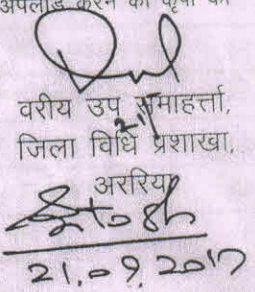 अपलोड करने की कृपा की
वरीय उप समाहर्त्ता,
जिला विधि प्रशाखा,
अररिया
21.09.2017